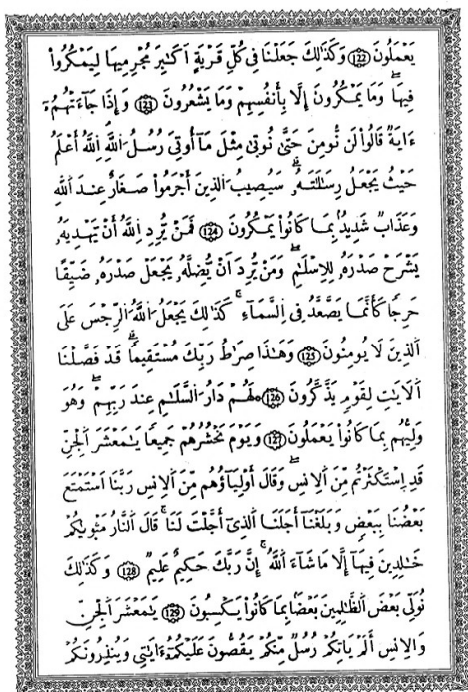 يَعْمَلُونَ ۝122 وَكَذَٰلِكَ جَعَلْنَا فِى كُلِّ قَرْيَةٍ أَكَٰبِرَ مُجْرِمِيهَا لِيَمْكُرُواْ
فِيهَا وَمَا يَمْكُرُونَ إِلَّا بِأَنفُسِهِمْ وَمَا يَشْعُرُونَ ۝123 وَإِذَا جَآءَتْهُمُۥٓ
ءَايَةٌ قَالُواْ لَن نُّومِنَ حَتَّىٰ نُوتَىٰ مِثْلَ مَآ أُوتِىَ رُسُلُ اللَّهِ اللَّهُ أَعْلَمُ
حَيْثُ يَجْعَلُ رِسَٰلَٰتِهِۦ سَيُصِيبُ الَّذِينَ أَجْرَمُواْ صَغَارٌ عِندَ اللَّهِ
وَعَذَابٌ شَدِيدٌۢ بِمَا كَانُواْ يَمْكُرُونَ ۝124 فَمَنْ يُّرِدِ اللَّهُ أَنْ يَّهْدِيَهُۥ
يَشْرَحْ صَدْرَهُۥ لِلِاسْلَٰمِ وَمَنْ يُّرِدَ اَنْ يُّضِلَّهُۥ يَجْعَلْ صَدْرَهُۥ ضَيِّقًا
حَرِجًا كَأَنَّمَا يَصَّعَّدُ فِى السَّمَآءِ كَذَٰلِكَ يَجْعَلُ اللَّهُ الرِّجْسَ عَلَى
الَّذِينَ لَا يُومِنُونَ ۝125 وَهَٰذَا صِرَٰطُ رَبِّكَ مُسْتَقِيمًا قَدْ فَصَّلْنَا
الَايَٰتِ لِقَوْمٍ يَذَّكَّرُونَ ۝126 لَهُمْ دَارُ السَّلَٰمِ عِندَ رَبِّهِمْ وَهُوَ
وَلِيُّهُم بِمَا كَانُواْ يَعْمَلُونَ ۝127 وَيَوْمَ نَحْشُرُهُمْ جَمِيعًا يَٰمَعْشَرَ الْجِنِّ
قَدِ اِسْتَكْثَرْتُم مِّنَ الِانسِ وَقَالَ أَوْلِيَآؤُهُم مِّنَ الِانسِ رَبَّنَا اَسْتَمْتَعَ
بَعْضُنَا بِبَعْضٍ وَبَلَغْنَآ أَجَلَنَا الَّذِىٓ أَجَّلْتَ لَنَا قَالَ النَّارُ مَثْوَىٰكُمْ
خَٰلِدِينَ فِيهَآ إِلَّا مَا شَآءَ اللَّهُ إِنَّ رَبَّكَ حَكِيمٌ عَلِيمٌ ۝128 وَكَذَٰلِكَ
نُوَلِّى بَعْضَ الظَّٰلِمِينَ بَعْضًۢا بِمَا كَانُواْ يَكْسِبُونَ ۝129 يَٰمَعْشَرَ الْجِنِّ
وَالِانسِ أَلَمْ يَاتِكُمْ رُسُلٌ مِّنكُمْ يَقُصُّونَ عَلَيْكُمُۥٓ ءَايَٰتِى وَيُنذِرُونَكُمْ